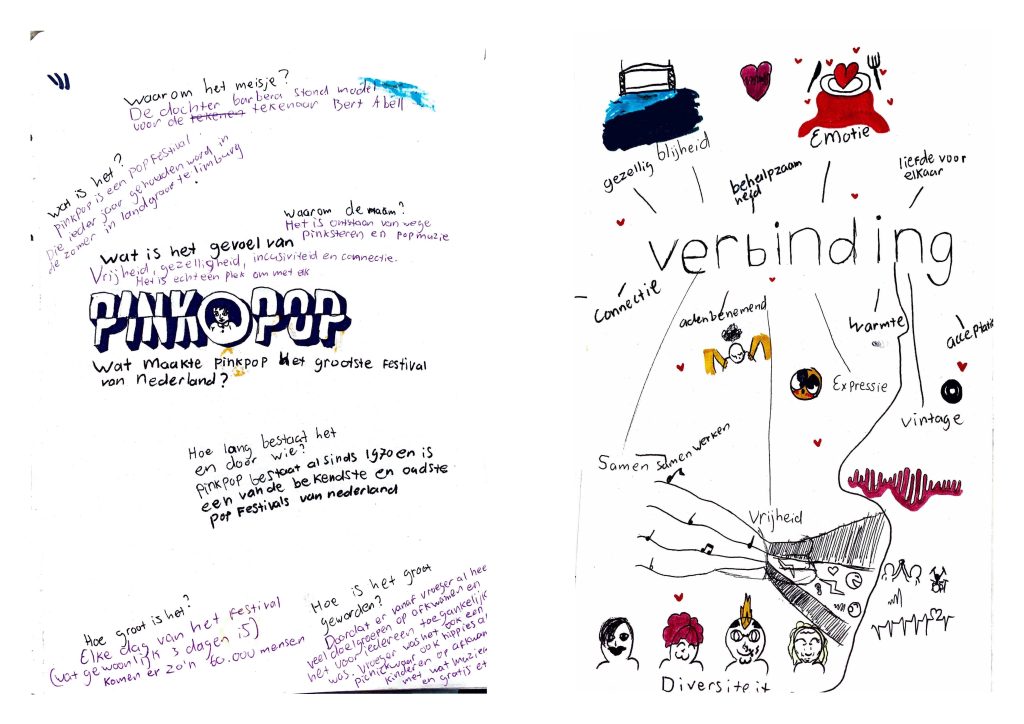 waarom het meisje?
De dochter barbera stond model
voor de tekenen tekenaar Bert Abell
wat is het?
pinkpop is een pop Festival
Die ieder jaar gehouden word in
de zomer in landgraaf te limburg
waarom de naam?
Het is ontstaan van wege
pinksteren en popmuzie
wat is het gevoel van
Vrijheid, gezelligheid, incusiviteid en connectie.
Het is echt een plek om met elk
PINKPOP
Wat maakte pinkpop het grootste Festival
van nederland?
Hoe lang bestaat het
en door wie?
pinkpop bestaat al sinds 1970 en is
een van de bekendste en oudste
pop Festivals van nederland
Hoe groot is het?
Elke dag van het festival
(wat gewoonlijk 3 dagen is)
komen er zo'n 60.000 mensen
Hoe is het groot
geworden?
Doordat er vanaf vroeger al hee
veel doelgroepen op afkwamen en
het voor iedereen toegankelijk
was. vroeger was het ook een
picnick waar ook hippies al
kinderen op afkwam
met wat muziek
en gratis et
gezellig
blijheid
behulpzaam
heid
Emotie
liefde voor
elkaar
verbinding
connectie
adenbenemend
Warmte
acceptati
Expressie
vintage
Samen
samenwerken
Vrijheid
Diversiteit